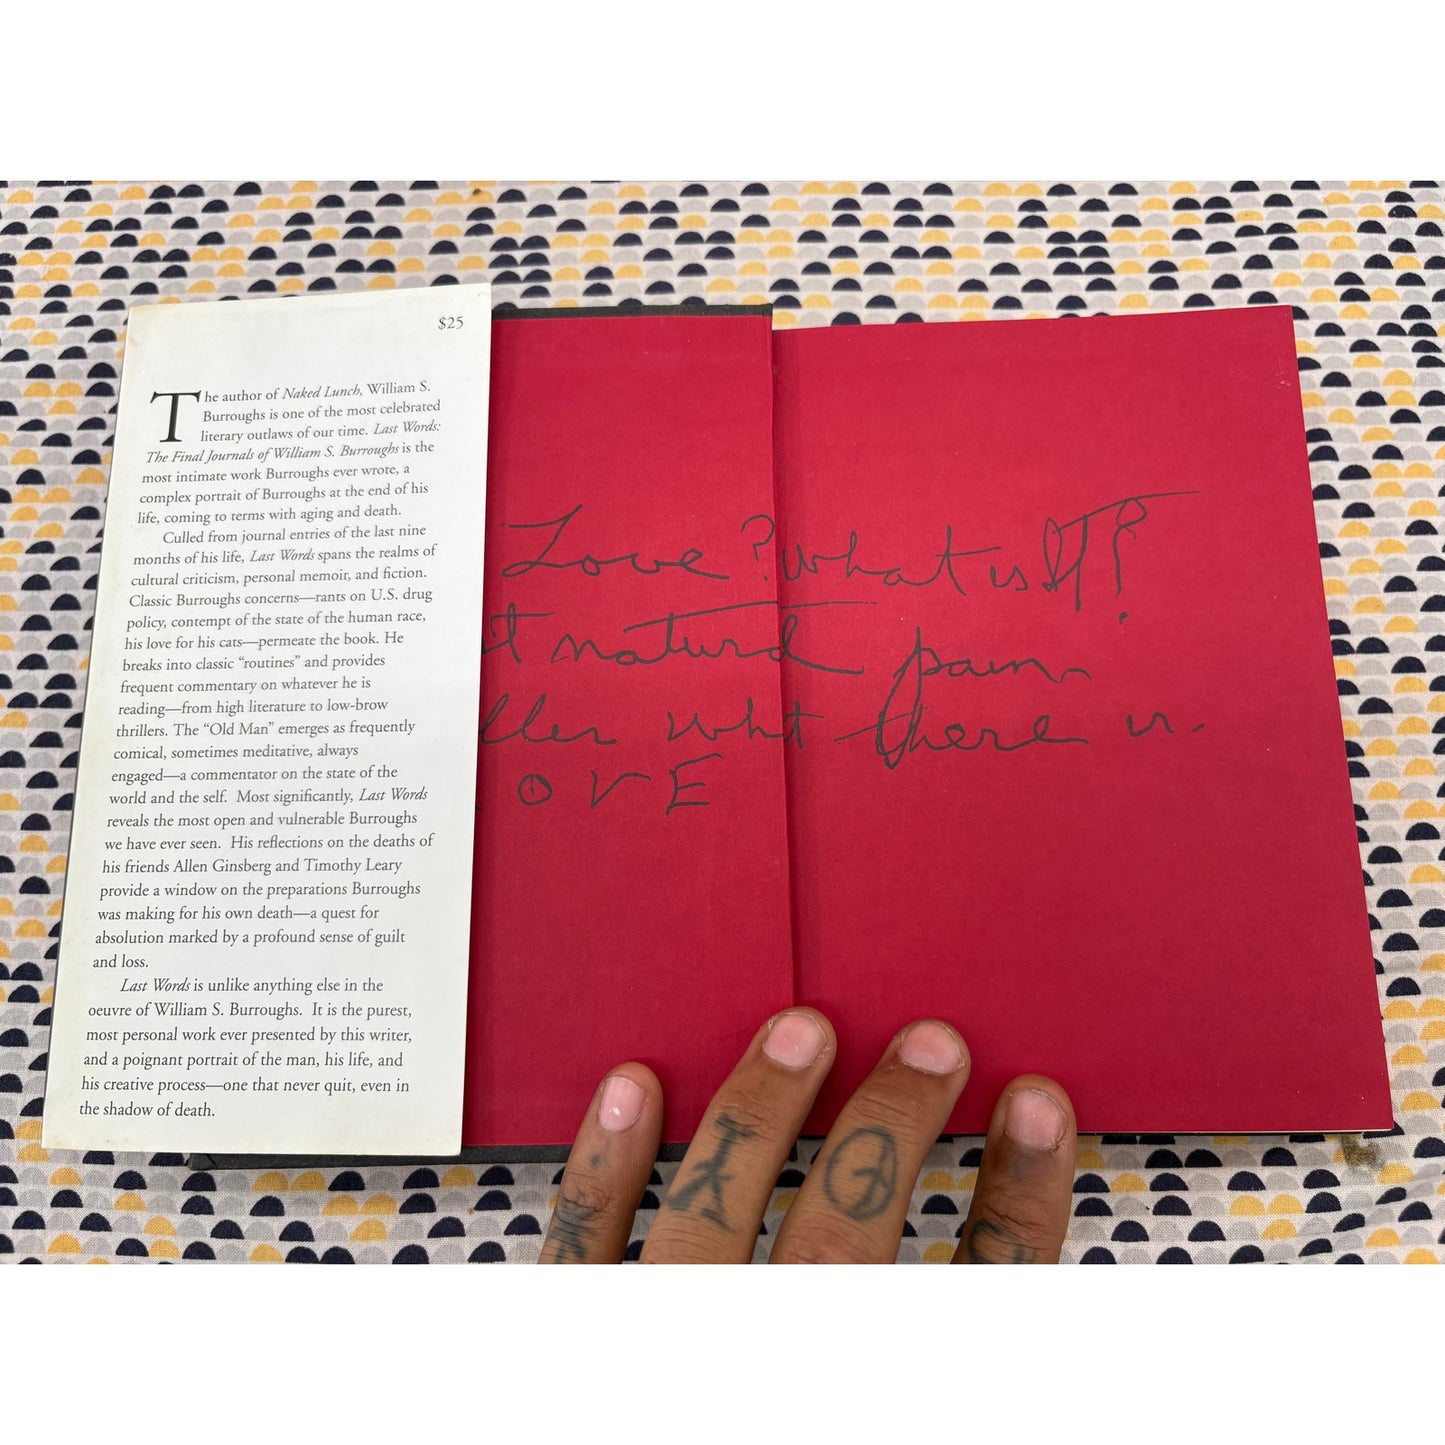 $25
The author of Naked Lunch, William S.
Burroughs is one of the most celebrated
literary outlaws of our time. Last Words:
The Final Journals of William S. Burroughs is the
most intimate work Burroughs ever wrote, a
complex portrait of Burroughs at the end of his
life, coming to terms with aging and death.
Culled from journal entries of the last nine
months of his life, Last Words spans the realms of
cultural criticism, personal memoir, and fiction.
Classic Burroughs concerns—rants on U.S. drug
policy, contempt of the state of the human race,
his love for his cats—permeate the book. He
breaks into classic “routines” and provides
frequent commentary on whatever he is
reading—from high literature to low-brow
thrillers. The “Old Man” emerges as frequently
comical, sometimes meditative, always
engaged—a commentator on the state of the
world and the self. Most significantly, Last Words
reveals the most open and vulnerable Burroughs
we have ever seen. His reflections on the deaths of
his friends Allen Ginsberg and Timothy Leary
provide a window on the preparations Burroughs
was making for his own death—a quest for
absolution marked by a profound sense of guilt
and loss.
Last Words is unlike anything else in the
oeuvre of William S. Burroughs. It is the purest,
most personal work ever presented by this writer,
and a poignant portrait of the man, his life, and
his creative process—one that never quit, even in
the shadow of death.
Love? What is It?
t natural pain
ller what there is.
OVE